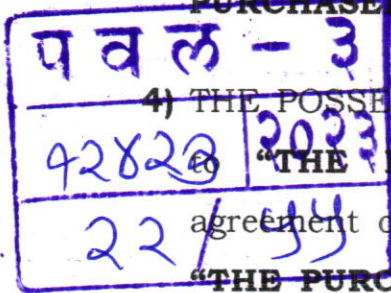 PURCHASE
पवल - ३
4) THE POSSE
१२४२३ २०२३
to “THE
२२ / ५५
agreement
“THE PURC